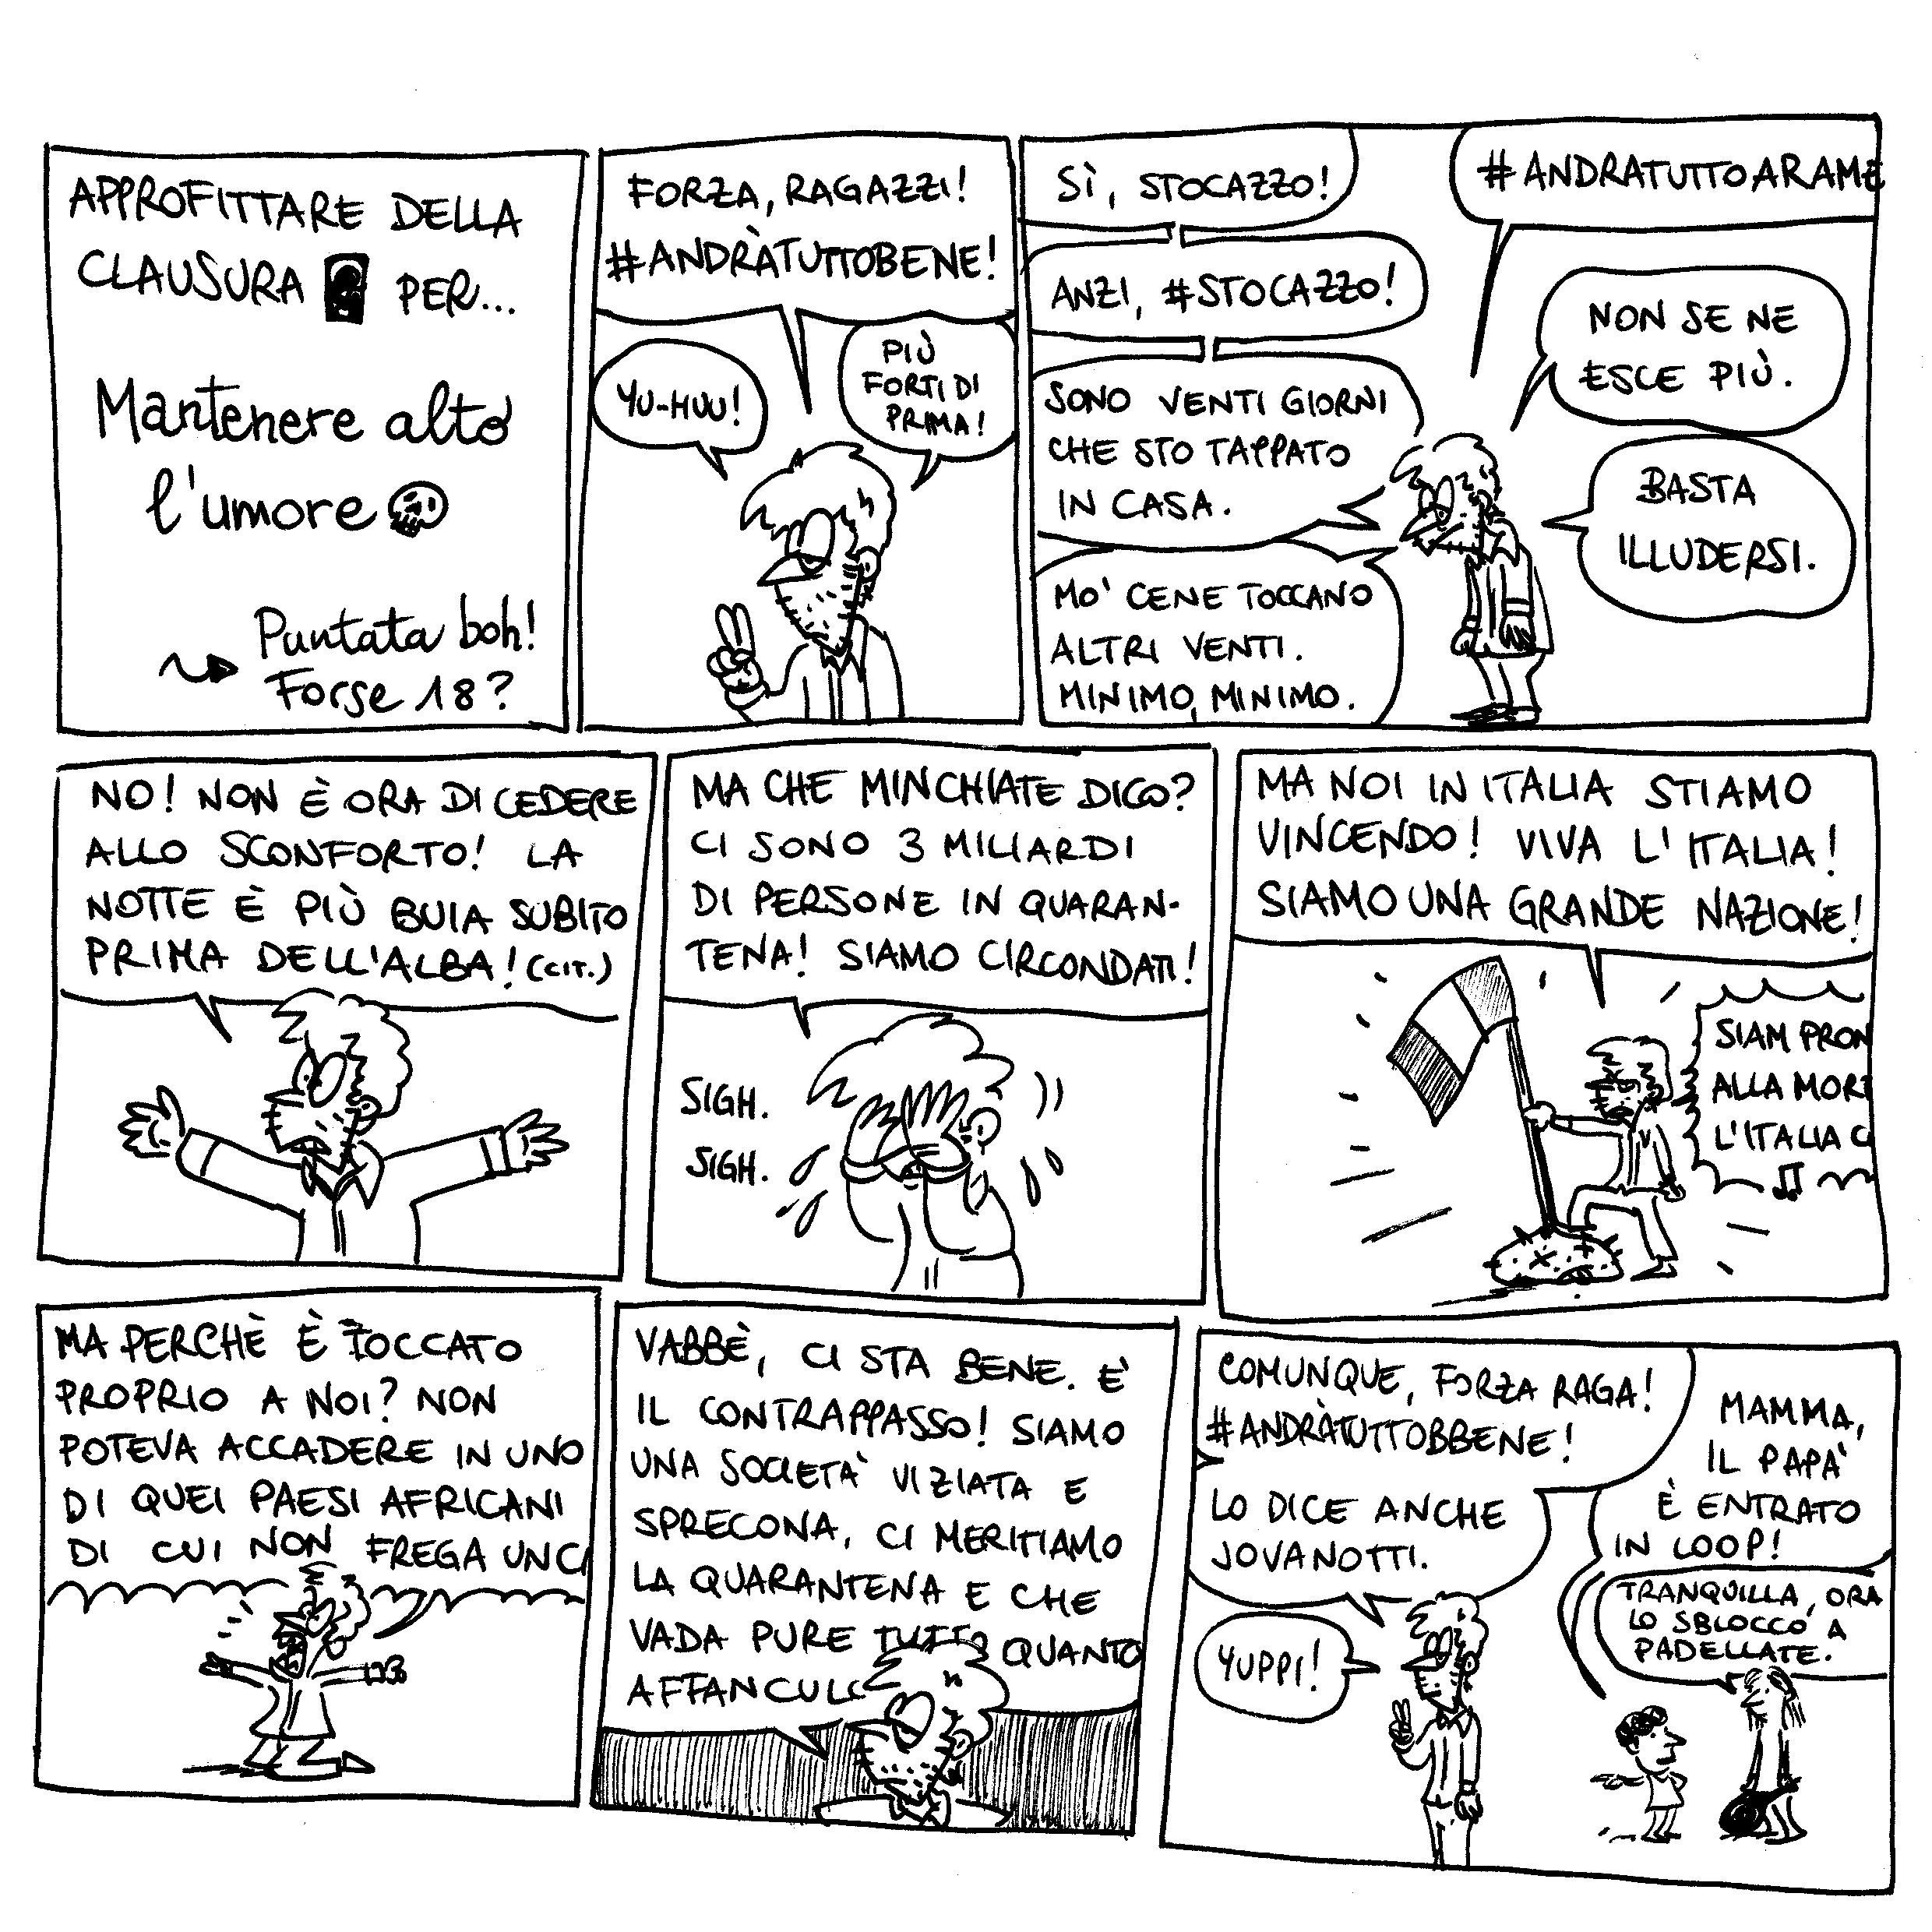 APPROFITTARE DELLA
CLAUSURA PER...
Mantenere alto
l'umore
Puntata boh!
Forse 18?
FORZA, RAGAZZI!
#ANDRÀTUTTOBENE!
YU-HUU!
PIÙ
FORTI DI
PRIMA!
SÌ, STOCAZZO!
ANZI, #STOCAZZO!
SONO VENTI GIORNI
CHE STO TAPPATO
IN CASA.
MO' CENE TOCCANO
ALTRI VENTI.
MINIMO, MINIMO.
#ANDRATUTTOARAME
NON SE NE
ESCE PIÙ.
BASTA
ILLUDERSI.
NO! NON È ORA DI CEDERE
ALLO SCONFORTO! LA
NOTTE È PIÙ BUIA SUBITO
PRIMA DELL'ALBA! (CIT.)
MA CHE MINCHIATE DICO?
CI SONO 3 MILIARDI
DI PERSONE IN QUARAN-
TENA! SIAMO CIRCONDATI!
SIGH.
SIGH.
MA NOI IN ITALIA STIAMO
VINCENDO! VIVA L'ITALIA!
SIAMO UNA GRANDE NAZIONE!
SIAM PRON
ALLA MORT
L'ITALIA C
MA PERCHÈ È TOCCATO
PROPRIO A NOI? NON
POTEVA ACCADERE IN UNO
DI QUEI PAESI AFRICANI
DI CUI NON FREGA UN C
VABBÈ, CI STA BENE. E'
IL CONTRAPPASSO! SIAMO
UNA SOCIETA' VIZIATA E
SPRECONA, CI MERITIAMO
LA QUARANTENA E CHE
VADA PURE TUTTO QUANTO
AFFANCULO
COMUNQUE, FORZA RAGA!
#ANDRÀTUTTOBBENE!
LO DICE ANCHE
JOVANOTTI.
YUPPI!
MAMMA,
IL PAPA'
È ENTRATO
IN LOOP!
TRANQUILLA, ORA
LO SBLOCCO A
PADELLATE.